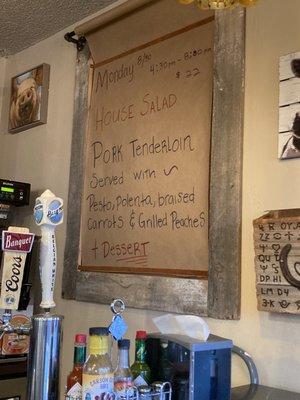 Monday 8/30
4:30pm - 8:30pm
$22
House Salad
Pork Tenderloin
Served with ~
Pesto, polenta, braised
Carrots & Grilled Peaches
+ Dessert
BANQUET
Coors